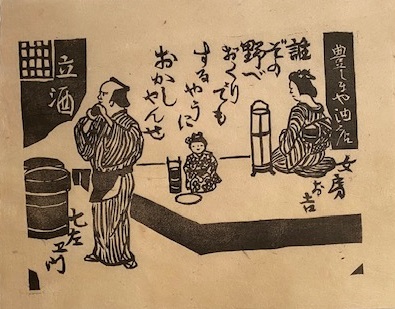 豊しまや油店
女房
お吉
誰
ぞの
野べ
おくりでも
するやうに
おかし
やんせ
立酒
七左
ヱ門